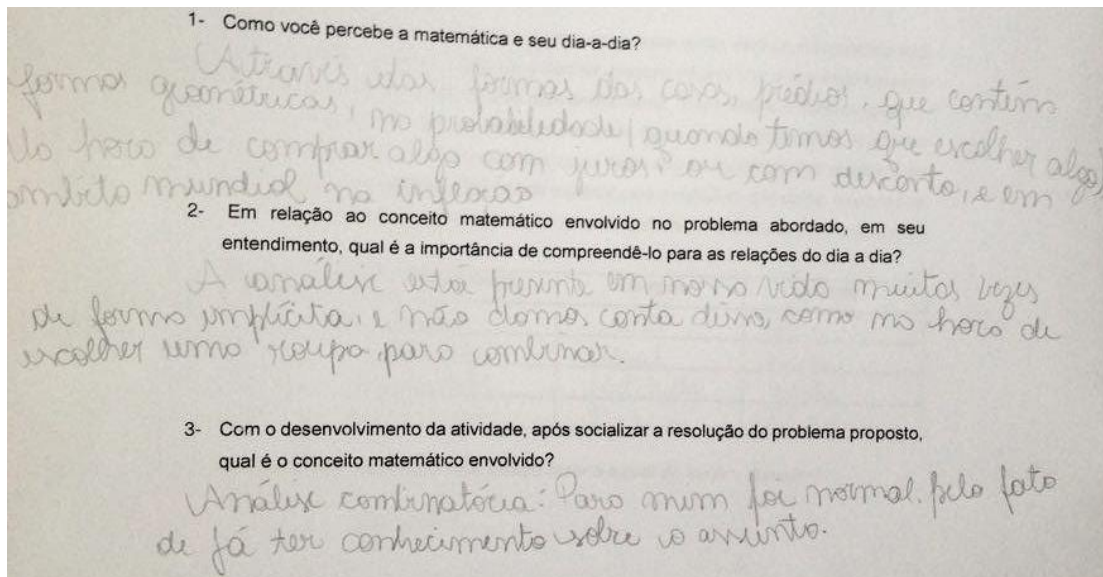 1- Como você percebe a matemática e seu dia-a-dia?
Através das formas das casas, prédios, que contém
formas geométricas, na probabilidade, quando temos que escolher algo,
Na hora de comprar algo com juros ou com desconto, e em
ambito mundial na inflação
2- Em relação ao conceito matemático envolvido no problema abordado, em seu
entendimento, qual é a importância de compreendê-lo para as relações do dia a dia?
A análise está presente em nossa vida muitas vezes
de forma implícita, e não damos conta disso, como na hora de
escolher uma roupa para combinar.
3- Com o desenvolvimento da atividade, após socializar a resolução do problema proposto,
qual é o conceito matemático envolvido?
Análise combinatória: Para mim foi normal. pelo fato
de já ter conhecimento sobre o assunto.